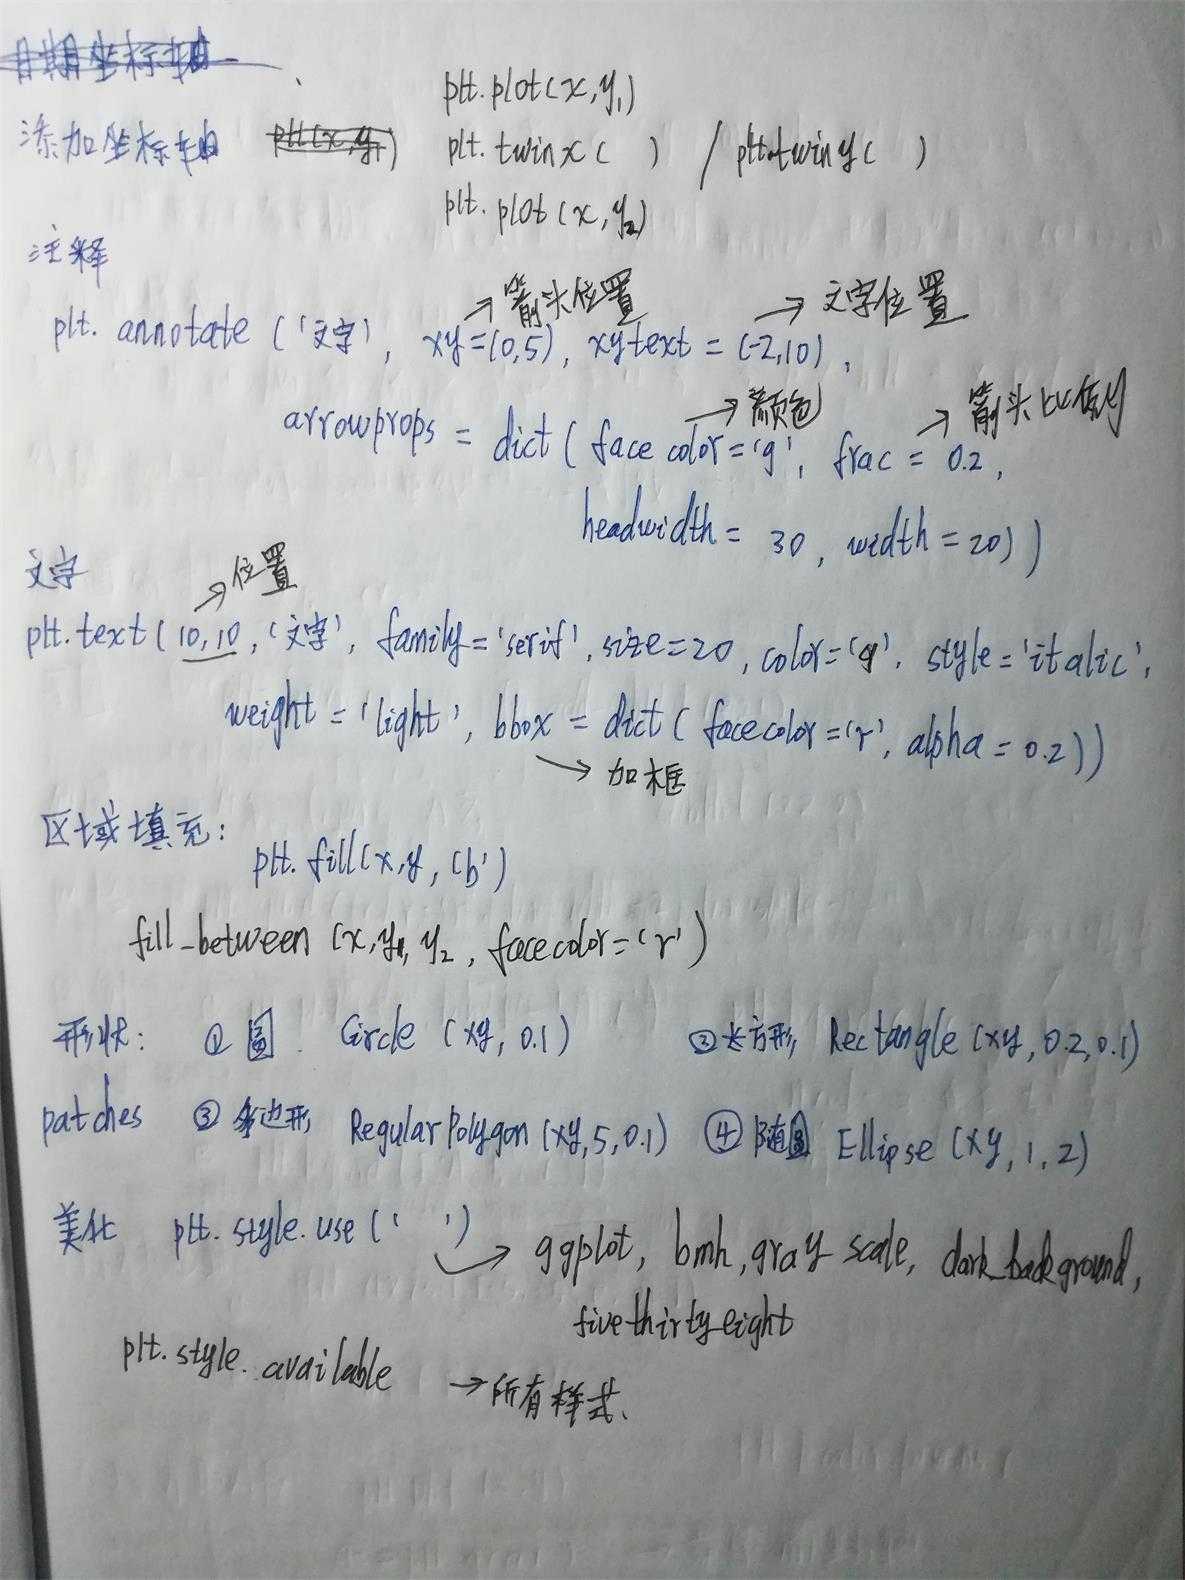 日期坐标轴
plt.plot(x,y₁)
添加坐标轴 plt(x,y₁) plt.twinx( ) / plt.twiny( )
plt.plot(x,y₂)
注释
→箭头位置 →文字位置
plt.annotate('文字', xy=(0,5), xytext=(-2,10),
→颜色 →箭头比例
arrowprops = dict(facecolor='g', frac = 0.2,
headwidth = 30, width=20))
文字 →位置
plt.text(10,10,'文字', family='serif', size=20, color='g', style='italic',
weight='light', bbox = dict(facecolor='r', alpha=0.2))
→加框
区域填充:
plt.fill(x,y,'b')
fill_between (x,y₁,y₂, facecolor='r')
形状: ①圆 Circle (xy, 0.1) ②长方形 Rectangle (xy, 0.2,0.1)
patches ③多边形 RegularPolygon (xy,5,0.1) ④随圆 Ellipse (xy,1,2)
美化 plt.style.use(' ')
→ ggplot, bmh, grayscale, dark_background,
fivethirtyeight
plt.style.available →所有样式.